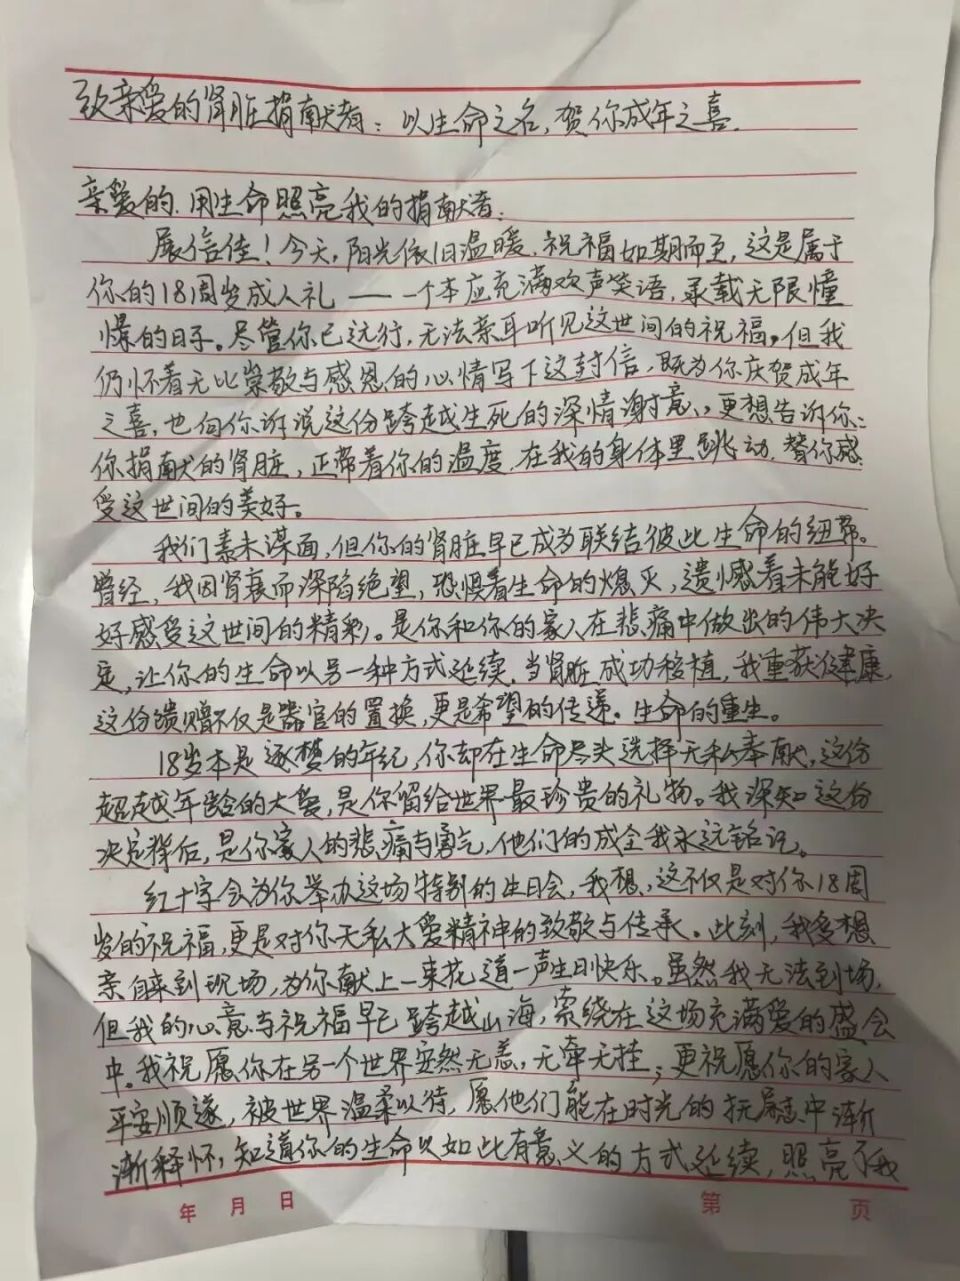 致亲爱的肾脏捐献者：以生命之名，贺你成年之喜.
亲爱的.用生命照亮我的捐献者：
展信佳！今天，阳光依旧温暖.祝福如期而至，这是属于
你的18周岁成人礼——一个本应充满欢声笑语，承载无限憧
憬的日子。尽管你已远行，无法亲耳听见这世间的祝福，但我
仍怀着无比崇敬与感恩的心情写下这封信，既为你庆贺成年
之喜，也向你诉说这份跨越生死的深情谢意，更想告诉你：
你捐献的肾脏，正带着你的温度.在我的身体里跳动.替你感
受这世间的美好。
我们素未谋面，但你的肾脏早已成为联结彼此生命的纽带。
曾经，我因肾衰而深陷绝望，恐惧着生命的熄灭，遗憾着未能好
好感受这世间的精彩。是你和你的家人在悲痛中做出的伟大决
定，让你的生命以另一种方式延续.当肾脏成功移植，我重获健康，
这份馈赠不仅是器官的置换，更是希望的传递.生命的重生。
18岁本是逐梦的年纪，你却在生命尽头选择无私奉献，这份
超越年龄的大爱，是你留给世界最珍贵的礼物。我深知这份
决定背后，是你家人的悲痛与勇气，他们的成全我永远铭记。
红十字会为你举办这场特别的生日会，我想，这不仅是对你18周
岁的祝福，更是对你无私大爱精神的致敬与传承。此刻，我多想
亲自来到现场，为你献上一束花，道一声生日快乐。虽然我无法到场，
但我的心意与祝福早已跨越山海，萦绕在这场充满爱的盛会
中。我祝愿你在另一个世界安然无恙，无牵无挂；更祝愿你的家人
平安顺遂，被世界温柔以待，愿他们能在时光的抚慰中渐
渐释怀，知道你的生命以如此有意义的方式延续，照亮了我
年 月 日 第 页